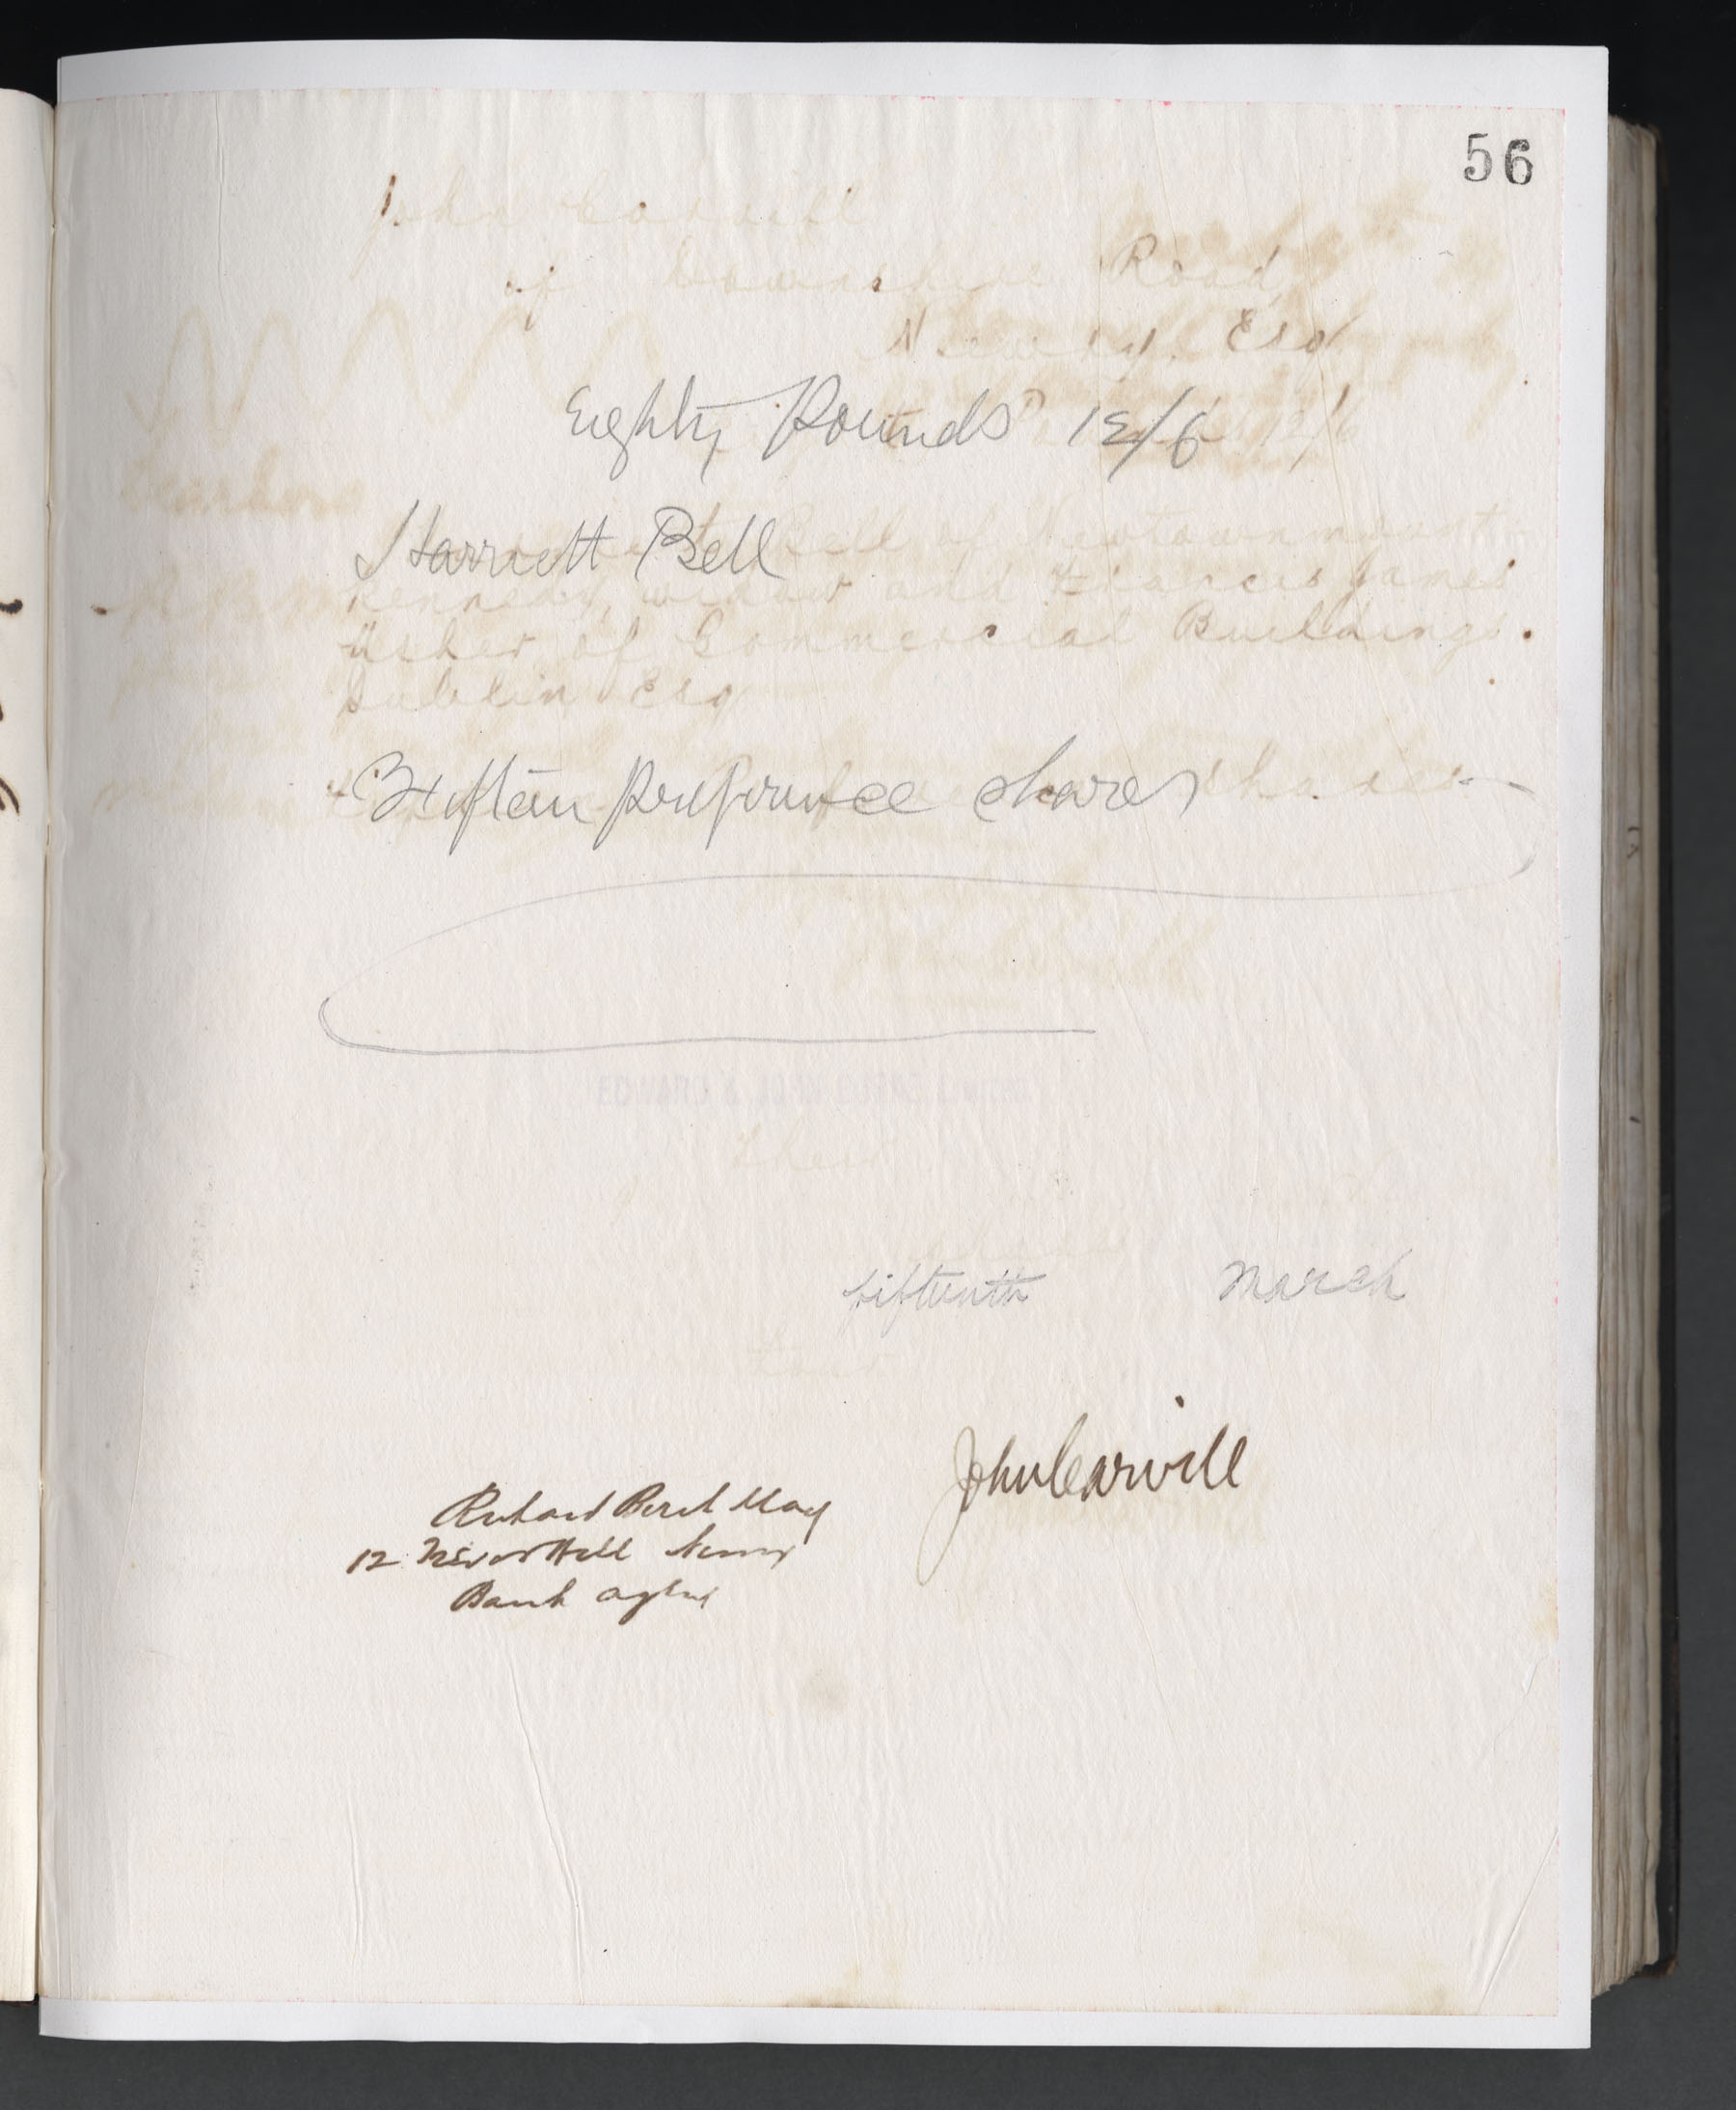 56
John Carvill
of Downshire Road
Newry. Esq
Eighty Pounds 12/6 12/6
Harriett Bell Bell of Newtownmount
Kennedy, widow and Francis James
Usher of Commercial Buildings.
Dublin Esq
Fifteen preference shares shares
EDWARD & JOHN BURKE Limited
their
fifteenth March
John Carvill
Richard Birch
12 Trevor Hill Newry
Bank agent